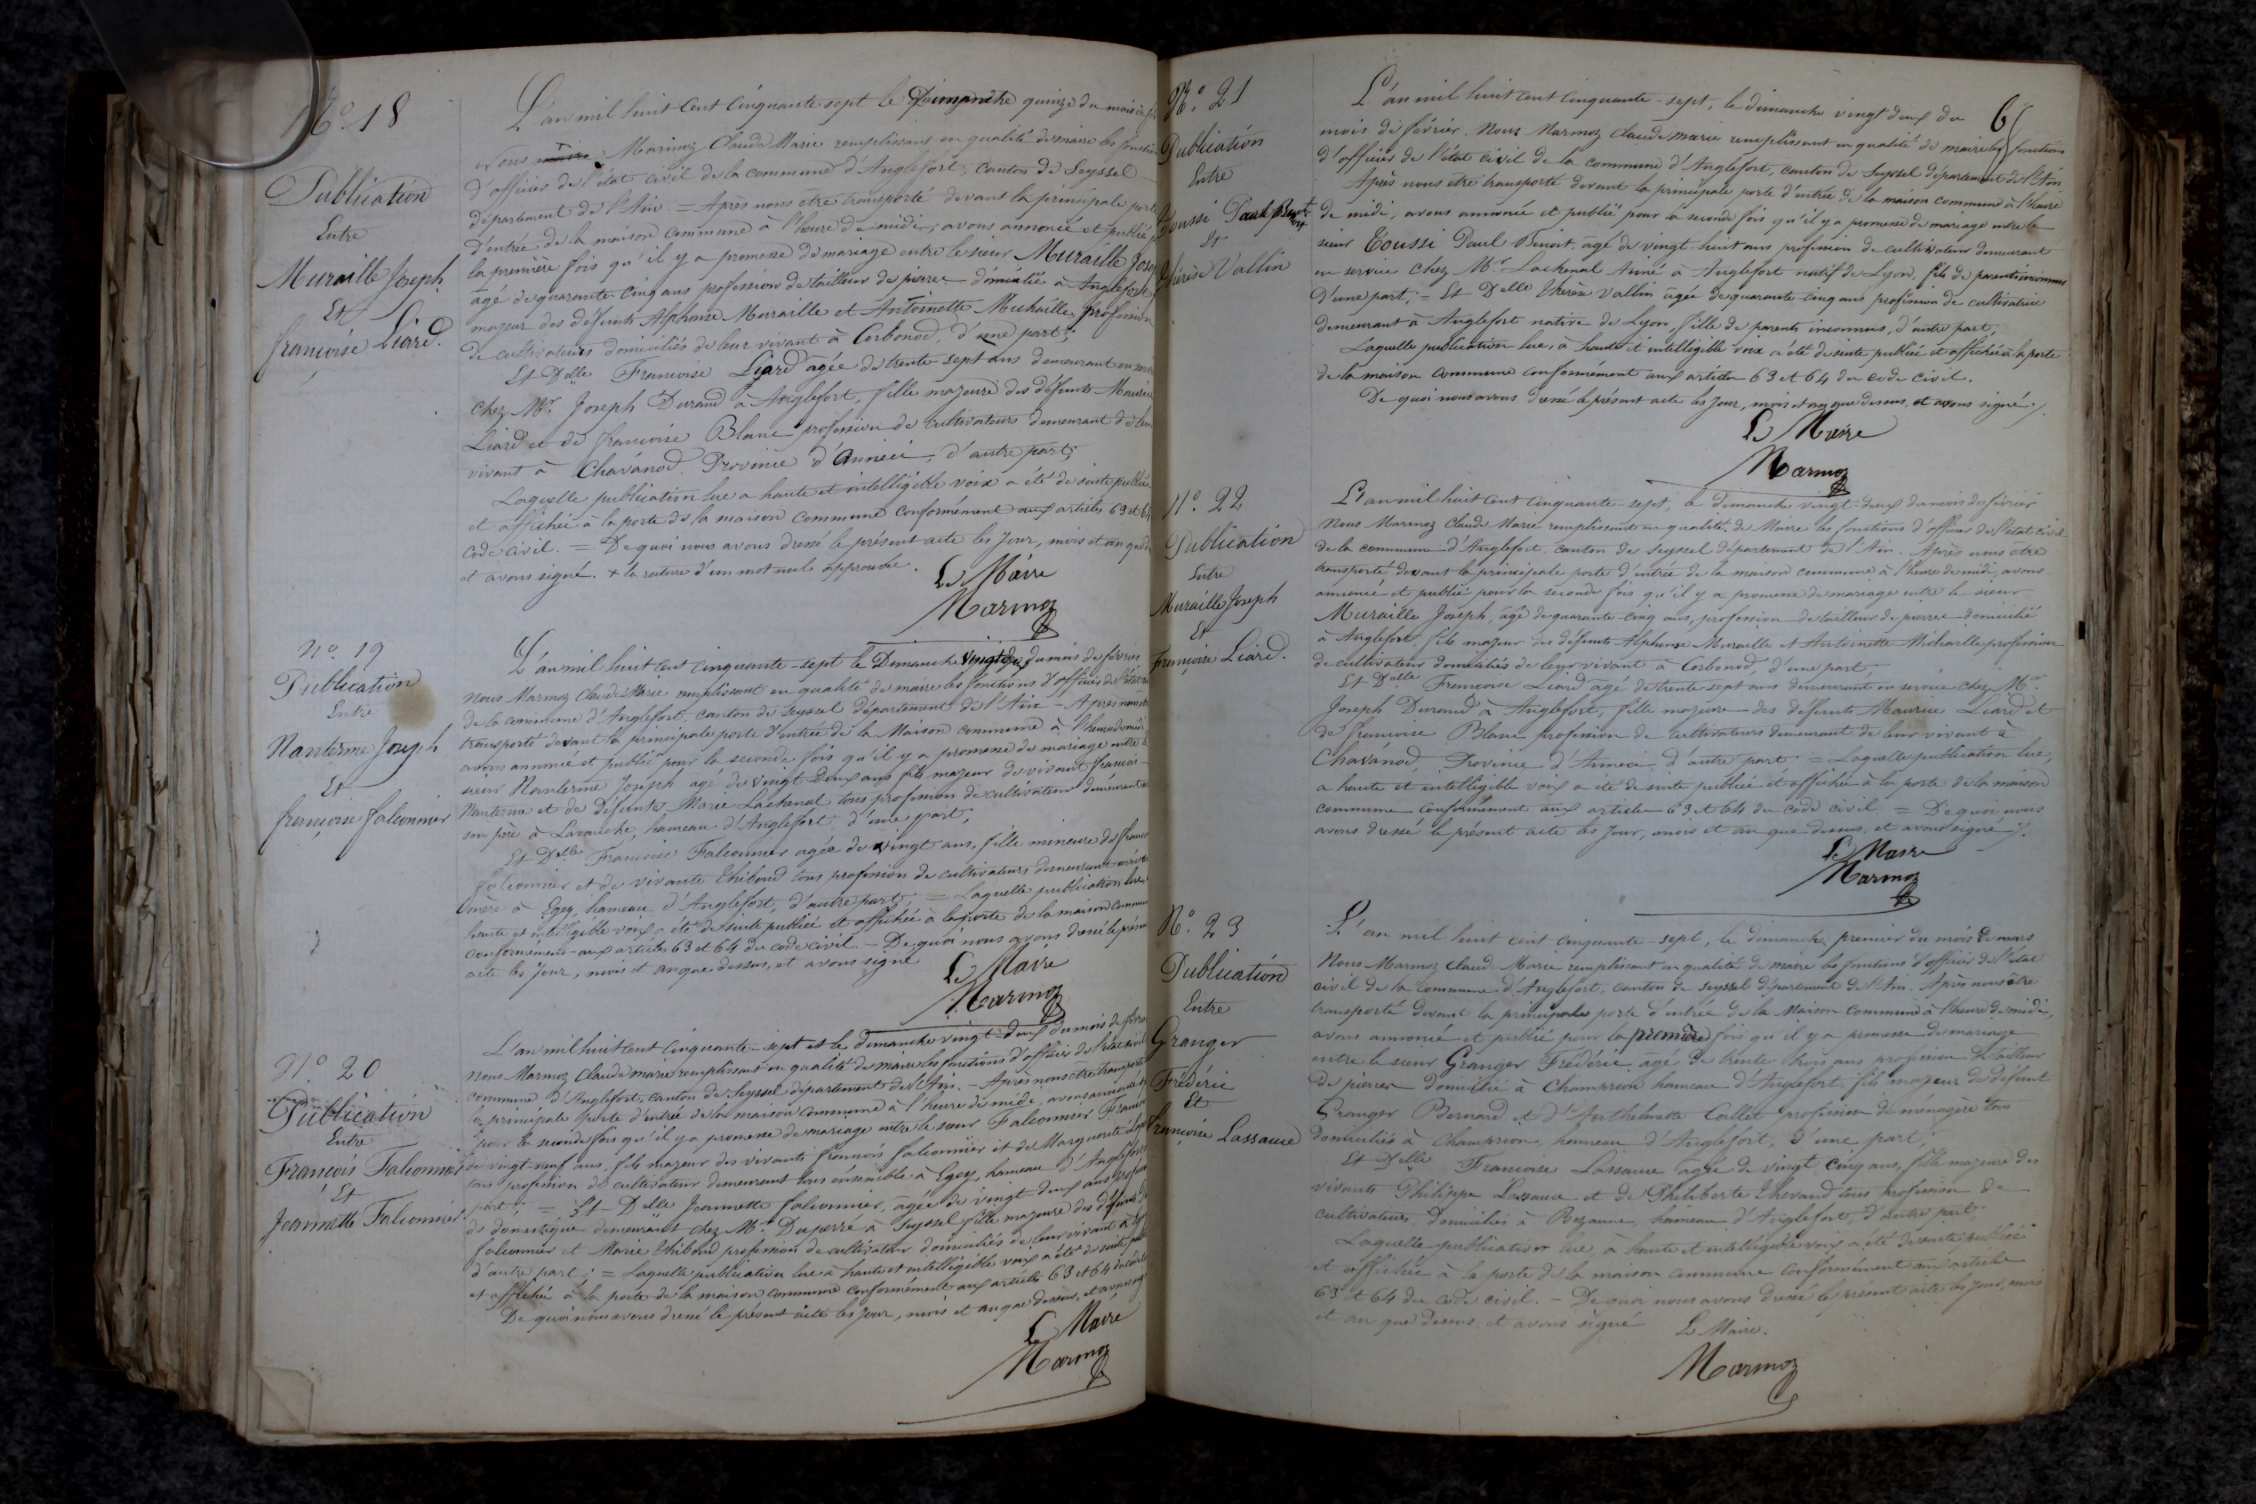 N.o 18
Publication
Entre
Muraille Joseph
Et
françoise Liard.
L'an mil huit cent cinquante sept le Dimanche quinze du mois de
Nous Marmoz Claude Marie remplissant en qualité de maire les fonctions
d'officier de l'état civil de la commune d'Anglefort, canton de Seyssel
département de l'Ain = Après nous être transporté devant la principale porte
d'entrée de la maison commune à l'heure de midi, avons annoncé et publié
la première fois qu'il y a promesse de mariage entre le sieur Muraille Jose
agé de quarante cinq ans profession de tailleur de pierre domicilié à Anglefort,
majeur des défunts Alphonse Muraille et Antoinette Michaille profession
de cultivateurs domiciliés de leur vivant à Corbonod, d'une part;
Et Delle Francoise Liard agée de trente sept ans demeurant en
chez Mr. Joseph Durand à Anglefort, fille majeure des défunts Maurice
Liard et de francoise Blanc profession de cultivateurs demeurant de leur
vivant à Chavánod Province d'Anneci, d'autre part;
Laquelle publication lue a haute et intelligible voix a été de suite publiée
et affichée à la porte de la maison commune conformément aux articles 63 et 64
code civil. = De quoi nous avons dressé le présent acte les jour, mois et an que
et avons signé. + la rature d'un mot nul approuvée.
Le Maire
Marmoz
No. 19
Publication
Entre
Nanterme Joseph
Et
françoise falconnier
L'an mil huit cent cinquante-sept le Dimanche vingt deux du mois de février
nous Marmoz Claude Marie remplissant en qualité de maire les fonctions d'officier de l'état
de la commune d'Anglefort, canton de Seyssel département de l'Ain - Après nous
transporté devant la principale porte d'entrée de la Maison commune à l'heure de midi
avons annoncé et publié pour la seconde fois qu'il y a promesse de mariage entre
sieur Nanterme Joseph agé de vingt deux ans fils majeur de vivant francois
Nanterme et de défunte Marie Lachenal tous profession de cultivateurs demeurant
son père à Lavanche, hameau d'Anglefort, d'une part;
Et Delle Francoise Falconnier agée de vingt ans, fille mineure de
falconnier et de vivante Thiboud tous profession de cultivateurs demeurant
mère à Egey, hameau d'Anglefort, d'autre part; = Laquelle publication lue
haute et intelligible voix a été de suite publiée et affichée à la porte de la maison commune
conformément aux articles 63 et 64 du code civil. - De quoi nous avons dressé le présent
acte les jour, mois et an que dessus, et avons signé
Le Maire
Marmoz
No. 20
Publication
Entre
François Falconnier
Et
Jeannette Falconnier
L'an mil huit cent cinquante-sept et le dimanche vingt-deux du mois de
nous Marmoz Claude marie remplissant en qualité de maire les fonctions d'officier de l'état civil
commune d'Anglefort, canton de Seyssel département de l'Ain. - Après nous être transporté
la principale porte d'entrée de la maison commune à l'heure de midi, avons annoncé
pour la seconde fois qu'il y a promesse de mariage entre le sieur Falconnier
de vingt-neuf ans, fils majeur des vivants francois falconnier et de Marguerite
tous profession de cultivateur demeurant tous ensemble à Egey, hameau d'Anglefort
part; = Et Delle Jeannette falconnier, agée de vingt deux ans
de domestique demeurant chez Mr. Duperré à Seyssel fille majeure des défunts
falconnier et Marie Thiboud profession de cultivateur domiciliés de leur vivant à
d'autre part; = Laquelle publication lue à haute et intelligible voix a été de suite
et affichée à la porte de la maison commune conformément aux articles 63 et 64 du code
De quoi nous avons dressé le présent acte les jour, mois et an que dessus, et avons
Le Maire
Marmoz
No. 21
Publication
Entre
Toussi Paul
Et
Thérèse Vallin
L'án mil huit cent cinquante-sept, le dimanche vingt deux du
mois de février. Nous Marmoz Claude marie remplissant en qualité de maire les fonctions
d'officier de l'état civil de la commune d'Anglefort, canton de Seyssel département de l'Ain
Après nous être transporté devant la principale porte d'entrée de la maison commune à l'heure
de midi, avons annoncé et publié pour la seconde fois qu'il y a promesse de mariage entre le
sieur Toussi Paul Benoit, agé de vingt-huit ans profession de cultivateur demeurant
en service chez Mr Lachenal Aimé à Anglefort natif de Lyon, fils de parents inconnus
d'une part; = Et Delle Thérèse Vallin agée de quarante-cinq ans profession de cultivatrice
demeurant à Anglefort native de Lyon, fille de parents inconnus, d'autre part,
Laquelle publication lue, à haute et intelligible voix a été de suite publiée et affichée à la porte
de la maison commune conformément aux articles 63 et 64 du code civil.
De quoi nous avons dressé le présent acte les jour, mois et an que dessus, et avons signé./.
Le Maire
Marmoz
No. 22
Publication
Entre
Muraille Joseph
Et
Françoise Liard.
L'an mil huit cent cinquante-sept, le dimanche vingt-deux du mois de février
Nous Marmoz Claude Marie remplissant en qualité de Maire les fonctions d'officier de l'état civil
de la commune d'Anglefort, canton de Seyssel département de l'Ain. Après nous être
transporté devant la principale porte d'entrée de la maison commune à l'heure de midi, avons
annoncé et publié pour la seconde fois qu'il y a promesse de mariage entre le sieur
Muraille Joseph, agé de quarante-cinq ans, profession de tailleur de pierre domicilié
à Anglefort, fils majeur des défunts Alphonse Muraille et Antoinette Michaille profession
de cultivateur domiciliés de leur vivant à Corbonod, d'une part,
Et Delle Francoise Liard agé de trente-sept ans demeurant en service chez Mr
Joseph Durand à Anglefort, fille majeure des défunts Maurice Liard et
de francoise Blanc profession de cultivateurs demeurant de leur vivant à
Chavánod, Province d'Anneci, d'autre part; = Laquelle publication lue,
a haute et intelligible voix a été de suite publiée et affichée à la porte de la maison
commune conformément aux articles 63 et 64 du code civil = De quoi nous
avons dressé le présent acte les jour, mois et an que dessus, et avons signé ./.
Le Maire
Marmoz
No. 23
Publication
Entre
Granger
Frédéric
Et
Françoise Lassauce
L'an mil huit cent cinquante-sept, le dimanche premier du mois de mars
Nous Marmoz Claude Marie remplissant en qualité de maire les fonctions d'officier de l'état
civil de la commune d'Anglefort, canton de Seyssel département de l'Ain. Après nous être
transporté devant la principale porte d'entrée de la Maison commune à l'heure de midi,
avons annoncé et publié pour la première fois qu'il y a promesse de mariage
entre le sieur Granger Frédéric, agé de trente trois ans profession de tailleur
de pierres domicilié à Champrion hameau d'Anglefort fils majeur de défunt
Granger Bernard et d' Collet profession de ménagère tous
domiciliés à Champrion, hameau d'Anglefort, d'une part;
Et Delle Francoise Lassauce agée de vingt cinq ans, fille majeure des
vivants Philippe Lassauce et de Philiberte Thevand tous profession de
cultivateurs, domiciliés à Rezanne, hameau d'Anglefort, d'autre part;
Laquelle publication lue à haute et intelligible voix a été de suite publiée
et affichée à la porte de la maison commune conformément aux articles
63 et 64 du code civil. - De quoi nous avons dressé le présent acte les jour, mois
et an que dessus, et avons signé
Le Maire.
Marmoz